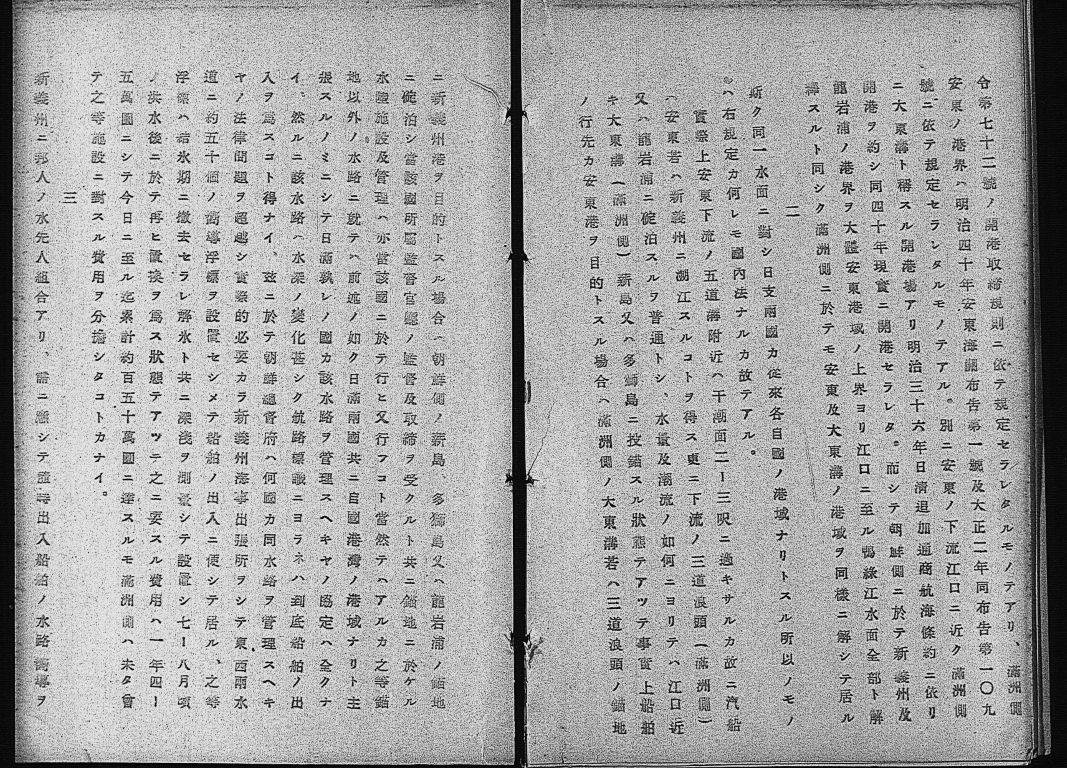 令第七十二號ノ開港取締規則ニ依テ規定セラレタルモノテアリ、滿洲側
安東ノ港界ハ明治四十年安東海關布告第一號及大正二年同布告第一〇九
號ニ依テ規定セラレタルモノテアル。別ニ安東ノ下流江口ニ近ク滿洲側
ニ大東溝ト稱スル開港場アリ明治三十六年日淸追加通商航海條約ニ依リ
開港ヲ約シ同四十年現實ニ開港セラレタ。而シテ朝鮮側ニ於テ新義州及
龍岩浦ノ港界ヲ大體安東港域ノ上界ヨリ江口ニ至ル鴨綠江水面全部ト解
釋スルト同シク滿洲側ニ於テモ安東及大東溝ノ港域ヲ同樣ニ解シテ居ル
二
斯ク同一水面ニ對シ日支兩國カ從來各自國ノ港域ナリトスル所以ノモノ
ハ右規定カ何レモ國內法ナルカ故テアル。
實際上安東下流ノ五道溝附近ハ干潮面二ー三呎ニ過キサルカ故ニ汽船
ハ安東若ハ新義州ニ溯江スルコトヲ得ス更ニ下流ノ三道浪頭(滿洲側)
又ハ龍岩浦ニ碇泊スルヲ普通トシ、水量及潮流ノ如何ニヨリテハ江口近
キ大東溝(滿洲側)新島又ハ多獅島ニ投錨スル狀態テアツテ事實上船舶
ノ行先カ安東港ヲ目的トスル場合ハ滿洲側ノ大東溝若ハ三道浪頭ノ錨地
ニ新義州港ヲ目的トスル場合ハ朝鮮側ノ新島、多獅島又ハ龍岩浦ノ錨地
ニ碇泊シ當該國所屬監督官廳ノ監督及取締ヲ受クルト共ニ錨地ニ於ケル
水陸施設及管理ハ亦當該國ニ於テ行ヒ又行フコト當然テハアルカ之等錨
地以外ノ水路ニ就テハ前述ノ如ク日滿兩國共ニ自國港灣ノ港域ナリト主
張スルノミニシテ日滿孰レノ國カ該水路ヲ管理スヘキヤノ協定ハ全クナ
イ。然ルニ該水路ハ水深ノ變化甚シク航路標識ニヨラネハ到底船舶ノ出
入ヲ爲スコト得ナイ、玆ニ於テ朝鮮總督府ハ何國カ同水路ヲ管理スヘキ
ヤノ法律問題ヲ超越シ實際的必要カラ新義州海事出張所ヲシテ東西兩水
道ニ約五十個ノ嚮導浮標ヲ設置セシメテ船舶ノ出入ニ便シテ居ル、之等
浮標ハ結氷期ニ撤去セラレ解氷ト共ニ深淺ヲ測量シテ設置シ七ー八月頃
ノ洪水後ニ於テ再ヒ置換ヲ爲ス狀態テアツテ之ニ要スル費用ハ一年四ー
五萬圓ニシテ今日ニ至ル迄累計約百五十萬圓ニ達スルモ滿洲側ハ未タ曾
テ之等施設ニ對スル費用ヲ分擔シタコトカナイ。
三
新義州ニ邦人ノ水先人組合アリ、需ニ應シテ證等出入船舶ノ水路嚮導ヲ